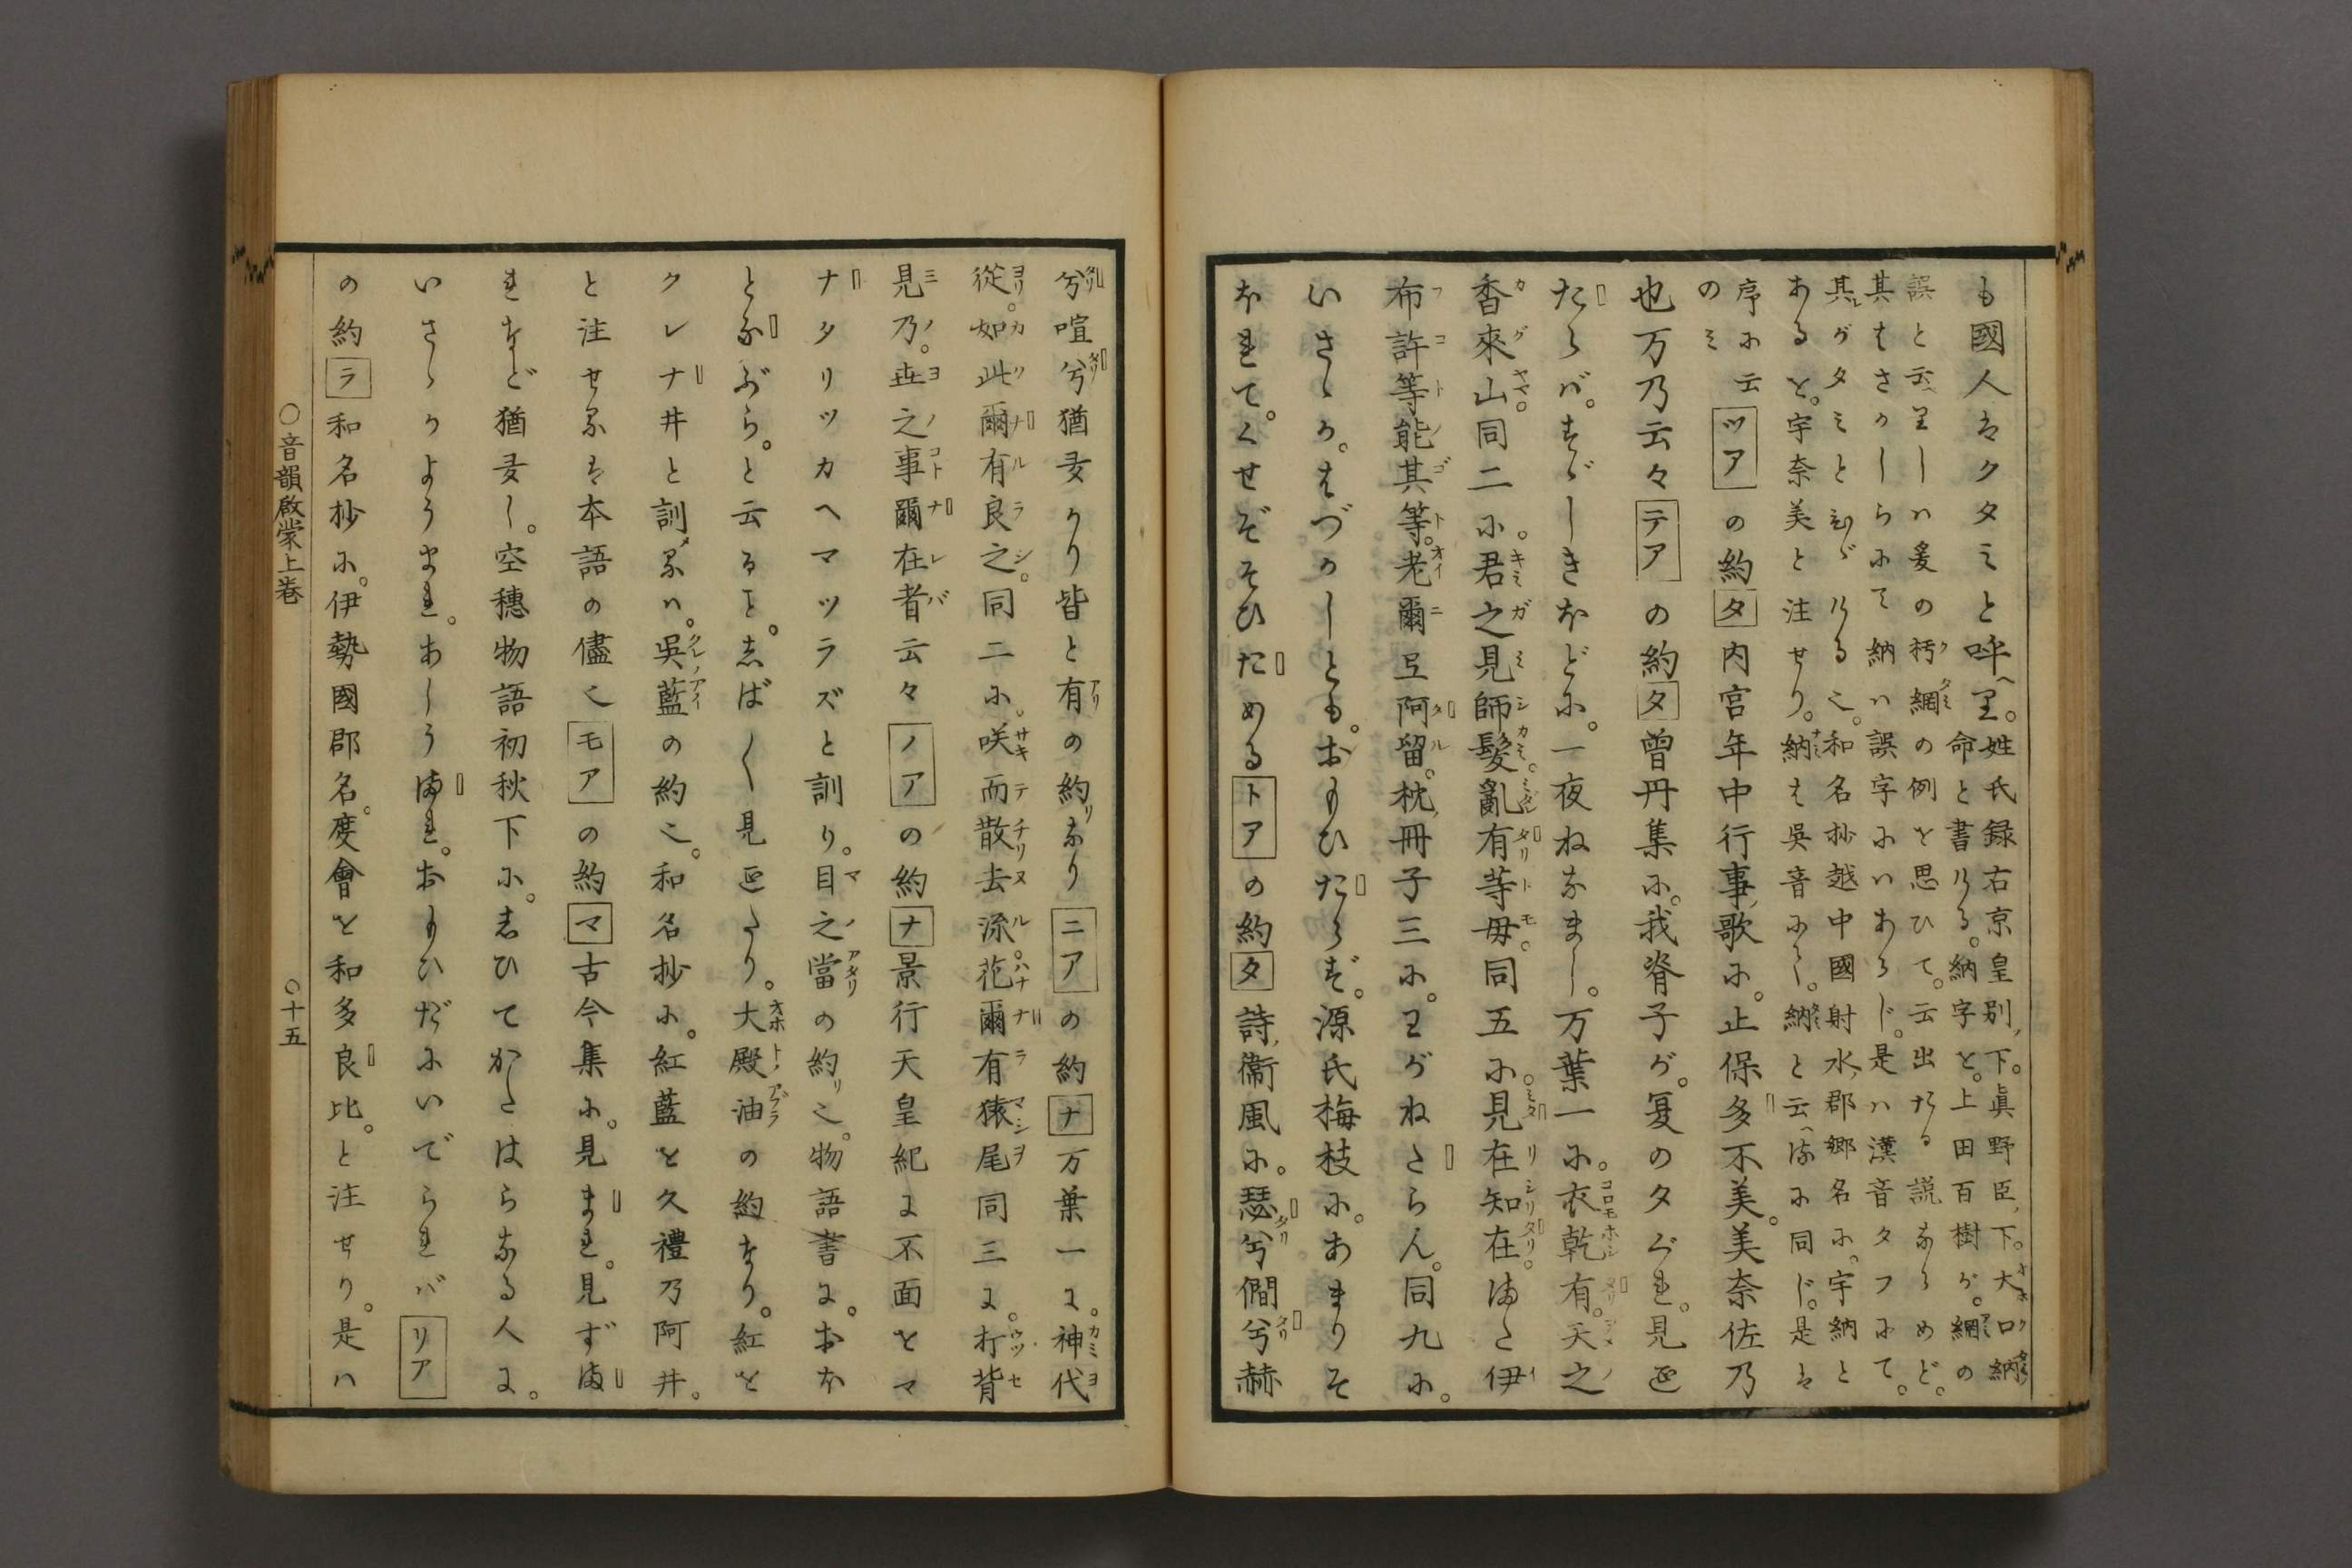 も國人はクタミと呼へり。姓氏録右京皇別、下。眞野臣、下。大口納
命と書ける。納字を。上田百樹が。網の
誤と云へりしハ爰の朽網の例を思ひて。云出たる説ならめど。
其はさかしらにて納ハ誤字にハあらじ。是ハ漢音タフにて。
其レがタミとなれる也。和名抄越中國射水、郡郷名に。宇納と
あるを。宇奈美と注せり。納は呉音にて。納と云へるに同じ。是は
序に云
のみ
ツアの約タ内宮年中行事、歌に。止保多不美。美奈佐乃
也万乃云々テアの約タ曽丹集に。我脊子が。夏のタぐれ。見延
たらバ。すゞしきほどに。一夜ねなまし。万葉一に。衣乾有。天之
香來山。同二に。君之見師髮。亂有等毋。同五に。見在知在。また伊
布許等能其等。老爾弖阿留。枕、冊子三に。わがねたらん。同九に。
いさゝか。はづかしとも。おもひたらず。源氏梅枝に。あまりそ
ほれて。くせぞそひためるトアの約タ詩、衞風に。瑟兮僩兮赫
兮喧兮猶多かり皆と有の約りなりニアの約ナ万葉一に。神代
從。如此爾有良之。同二に。咲而散去流。花爾有猿尾同三に。打背
見乃。世之事爾在者云々ノアの約ナ景行天皇紀に不面をマ
ナタリツカヘマツラズと訓り。目之當の約り也。物語書に。おほ
となぶら。と云るを。志ば〱見延たり。大殿油の約なり。紅を
クレナ井と訓メるハ。呉藍の約也。和名抄に。紅藍を久禮乃阿井。
と注せるは本語の儘也モアの約マ古今集に。見まれ。見ずま
れなど猶多し。空穗物語初秋下に。志ひてかたはらなる人に。
いさゝかようまれ。あしうまれ。おもひだにいでられバリア
の約ラ和名抄に。伊勢國郡名。度會を和多良比。と注せり。是ハ
○音韻啟蒙上巻　○十五